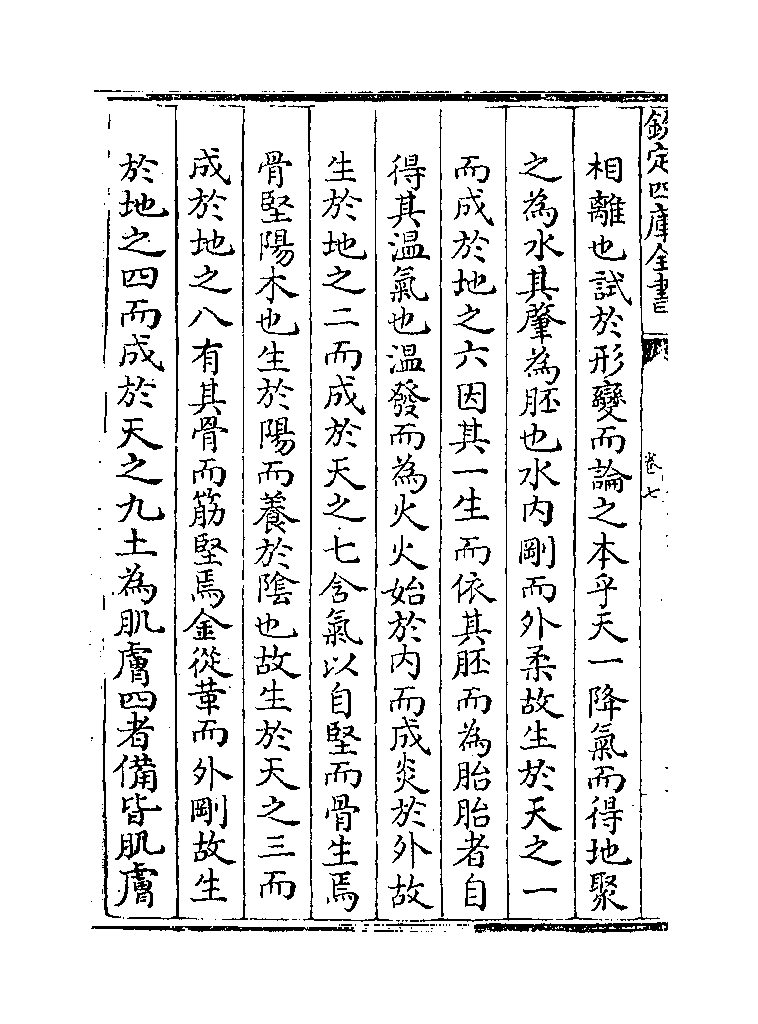 欽定四庫全書
卷七
相離也試於形變而論之本乎天一降氣而得地聚
之為水其肇為胚也水內剛而外柔故生於天之一
而成於地之六因其一生而依其胚而為胎胎者自
得其溫氣也溫發而為火火始於內而成炎於外故
生於地之二而成於天之七含氣以自堅而骨生焉
骨堅陽木也生於陽而養於陰也故生於天之三而
成於地之八有其骨而筋堅焉金從革而外剛故生
於地之四而成於天之九土為肌膚四者備皆肌膚